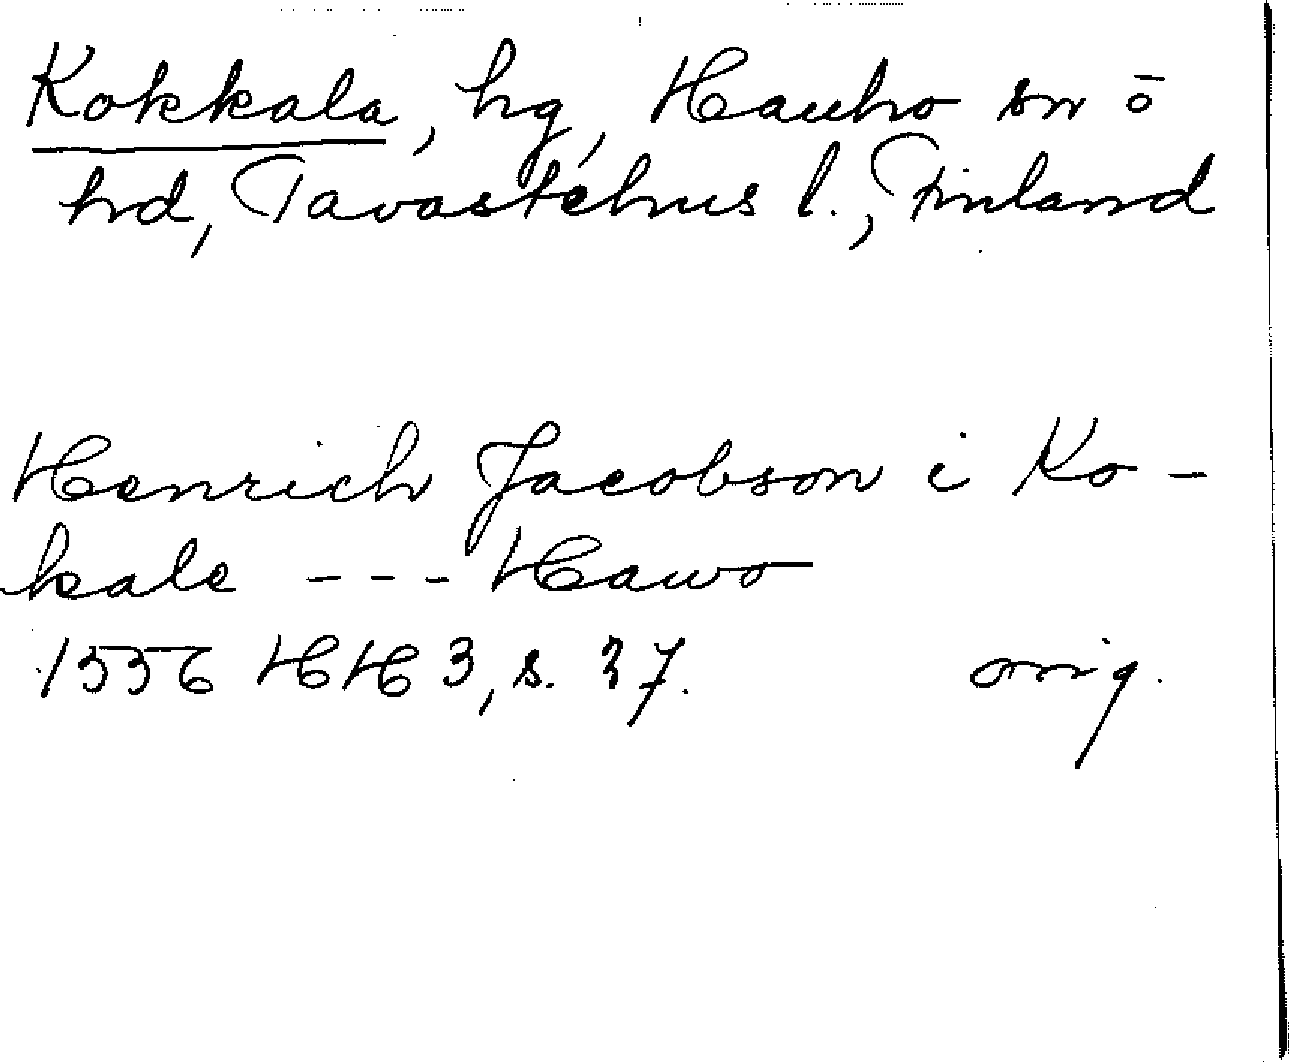 Kokkala, hg, Hauho sn ō
hd, Tavastehus l., Finland
Henrich Jacobson i Ko-
kale --- Hawo
1556 HH 3, s. 37. orig.